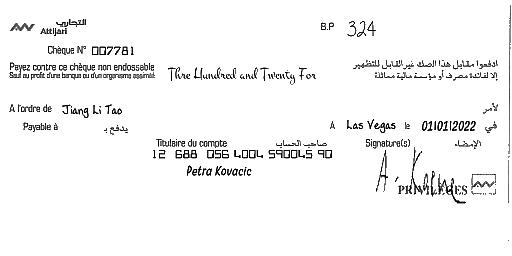 التجاري
Attijari
B.P 324
Chèque N° 007781
Payez contre ce chèque non endossable
Sauf au profit d'une banque ou d'un organisme assimilé
Thre Hundred and Twenty For
ادفعوا مقابل هذا الصك غير القابل للتظهير
إلا لفائدة مصرف أو مؤسسة مالية مماثلة
A l'ordre de Jiang Li Tao
لأمر
Payable à يدفع بـ
A Las Vegas le 01/01/2022 في
Titulaire du compte صاحب الحساب
Signature(s) الإمضاء
12 688 056 4004 590045 90
Petra Kovacic
PRIVILEGES